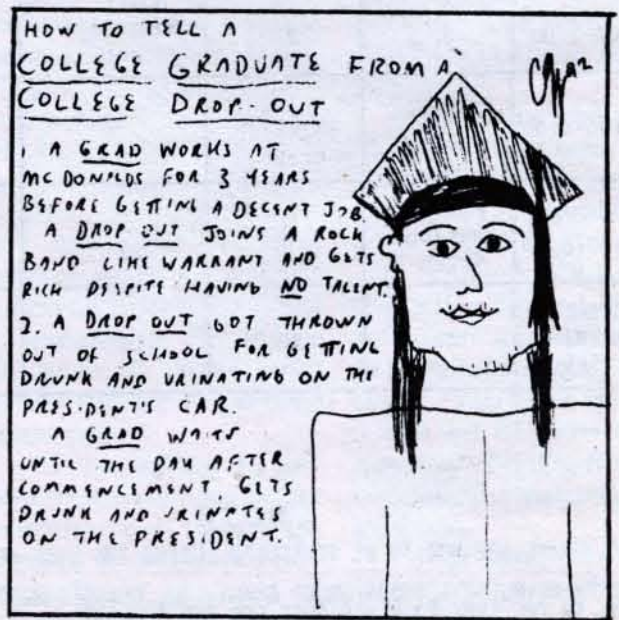 HOW TO TELL A
COLLEGE GRADUATE FROM A
COLLEGE DROP-OUT
1. A GRAD WORKS AT
MCDONALDS FOR 3 YEARS
BEFORE GETTING A DECENT JOB.
A DROP OUT JOINS A ROCK
BAND LIKE WARRANT AND GETS
RICH DESPITE HAVING NO TALENT.
2. A DROP OUT GOT THROWN
OUT OF SCHOOL FOR GETTING
DRUNK AND URINATING ON THE
PRESIDENT'S CAR.
A GRAD WAITS
UNTIL THE DAY AFTER
COMMENCEMENT, GETS
DRUNK AND URINATES
ON THE PRESIDENT.